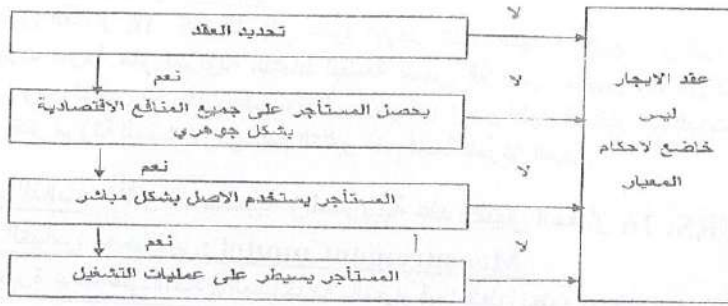 تحديد العقد
لا
نعم
يحصل المستأجر على جميع المنافع الاقتصادية
بشكل جوهري
لا
نعم
المستأجر يستخدم الاصل بشكل مباشر
لا
نعم
أ
المستأجر يسيطر على عمليات التشغيل
لا
عقد الايجار
ليس
خاضع لاحكام
المعيار